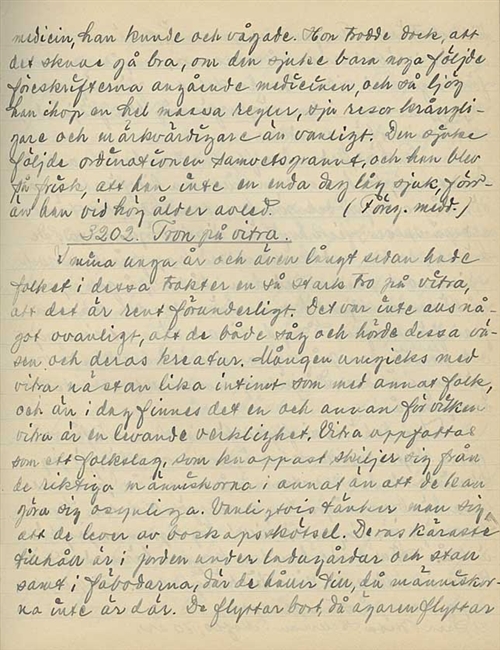 medicin, han kunde och vågade. Hon trodde dock, att
det skulle gå bra, om den sjuke bara noga följde
föreskrifterna angående medicinen, och så ljög
han ihop en hel massa regler, sju resor krångli-
gare och märkvärdigare än vanligt. Den sjuke
följde ordinationen samvetsgrannt, och han blev
så frisk, att han inte en enda dag låg sjuk, förr-
än han vid hög ålder avled. (Föreg. medd.)
3202. Tron på vitra.
I mina unga år och även långt sedan hade
folket i dessa trakter en så stark tro på vitra,
att det är rent förunderligt. Det var inte alls nå-
got ovanligt, att de både såg och hörde dessa vä-
sen och deras kreatur. Mången umgicks med
vitra nästan lika intimt som med annat folk,
och än i dag finnes det en och annan för vilken
vitra är en levande verklighet. Vitra uppfattas
som ett folkslag, som knappast skiljer sig från
de riktiga människorna i annat än att de kan
göra sig osynliga. Vanligtvis tänker man sig,
att de lever av boskapsskötsel. Deras käraste
tillhåll är i jorden under ladugårdar och stall
samt i fäbodarna, där de håller till, då människor-
na inte är där. De flyttar bort, då ägaren flyttar